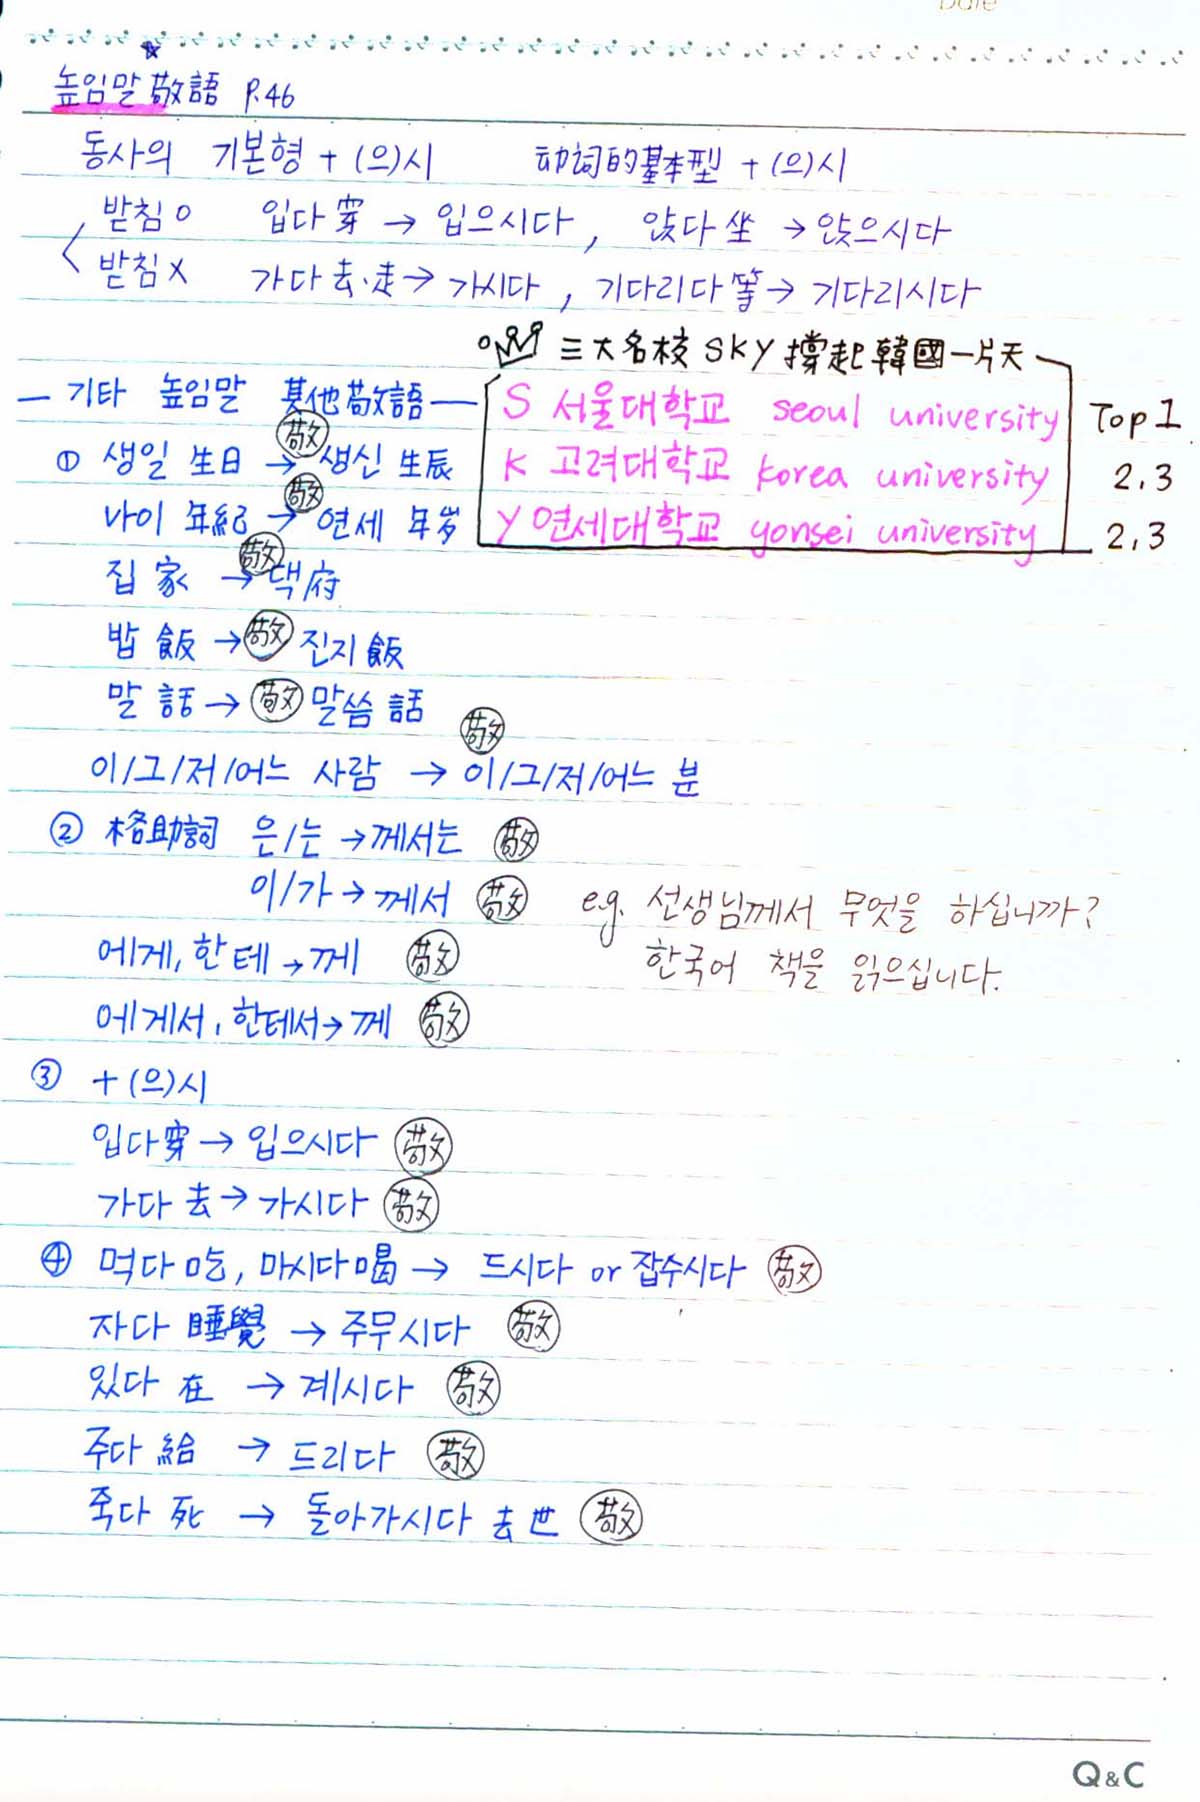 Date
높임말 敬語 P.46
동사의 기본형 + (으)시 动词的基本型 + (으)시
받침 O 입다 穿 → 입으시다, 앉다 坐 → 앉으시다
받침 X 가다 去·走 → 가시다, 기다리다 等 → 기다리시다
三大名校 SKY 撐起韓國一片天
S 서울대학교 seoul university Top 1
K 고려대학교 korea university 2,3
Y 연세대학교 yonsei university 2,3
— 기타 높임말 其他敬語 —
① 생일 生日 → 敬 생신 生辰
나이 年紀 → 敬 연세 年岁
집 家 → 敬 댁 府
밥 飯 → 敬 진지 飯
말 話 → 敬 말씀 話
이/그/저/어느 사람 → 敬 이/그/저/어느 분
② 格助詞 은/는 → 께서는 敬
이/가 → 께서 敬 e.g. 선생님께서 무엇을 하십니까?
한국어 책을 읽으십니다.
에게, 한테 → 께 敬
에게서, 한테서 → 께 敬
③ + (으)시
입다 穿 → 입으시다 敬
가다 去 → 가시다 敬
④ 먹다 吃, 마시다 喝 → 드시다 or 잡수시다 敬
자다 睡覺 → 주무시다 敬
있다 在 → 계시다 敬
주다 給 → 드리다 敬
죽다 死 → 돌아가시다 去世 敬
Q&C